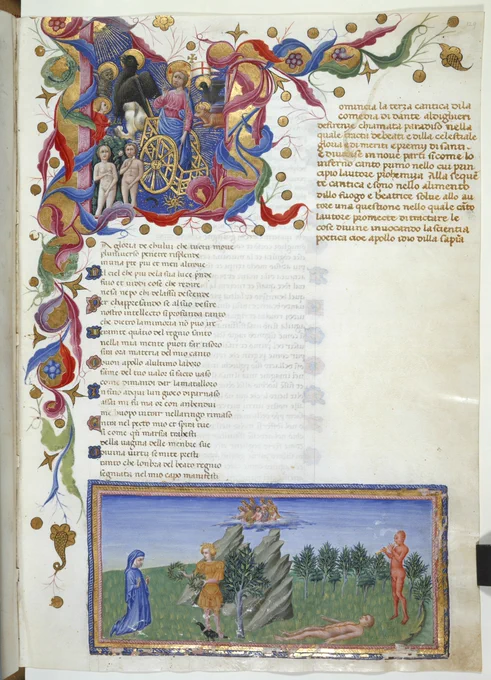 omincia la terza cantica dila
comedia di dante aldighieri
defirenze chiamata paradiso nella
quale tracta debeati e dilla celestiale
gloria e di meriti e premij di santi
e diuidese in noue parti si come lo
inferno canto primo nello cui prin
cipio lautore prohemiza alla seque
te cantica e sono nello alimento
dllo fuogo e beatrice solue allo au
tore una questione nello quale cāto
lautore promecte di tractare le
cose diuine inuocando la scientia
poetica cioe apollo dilla
La gloria de chului che tucto moue
per luniuerso penetra risplende
in una parte piu et men altroue
Nel ciel che piu dela sua luce prende
fuio et uidde cose che redire
nesa nepo chi delassu descende
Per chapressando se al suo desire
nostro intellecto si profunda tanto
che dietro la memoria no puo ire
Veramente quātio del regno santo
nella mia mente puoti far tesoro
sira ora materia del mio canto
O buon apollo alultimo laboro
fame del tuo ualor si facto uaso
come dimandi dar lamatalloro
Infino aqui lun giogo di parnaso
assai mi fu ma or con anbendui
me huopo intrar nellaringo rimaso
Entra nel pecto mio et spira tue
si come qn marsia trahesti
della uagina delle menbre sue
O diuina uirtu se mite presti
tanto che lonbra del beato regno
segnata nel mio capo manifesti